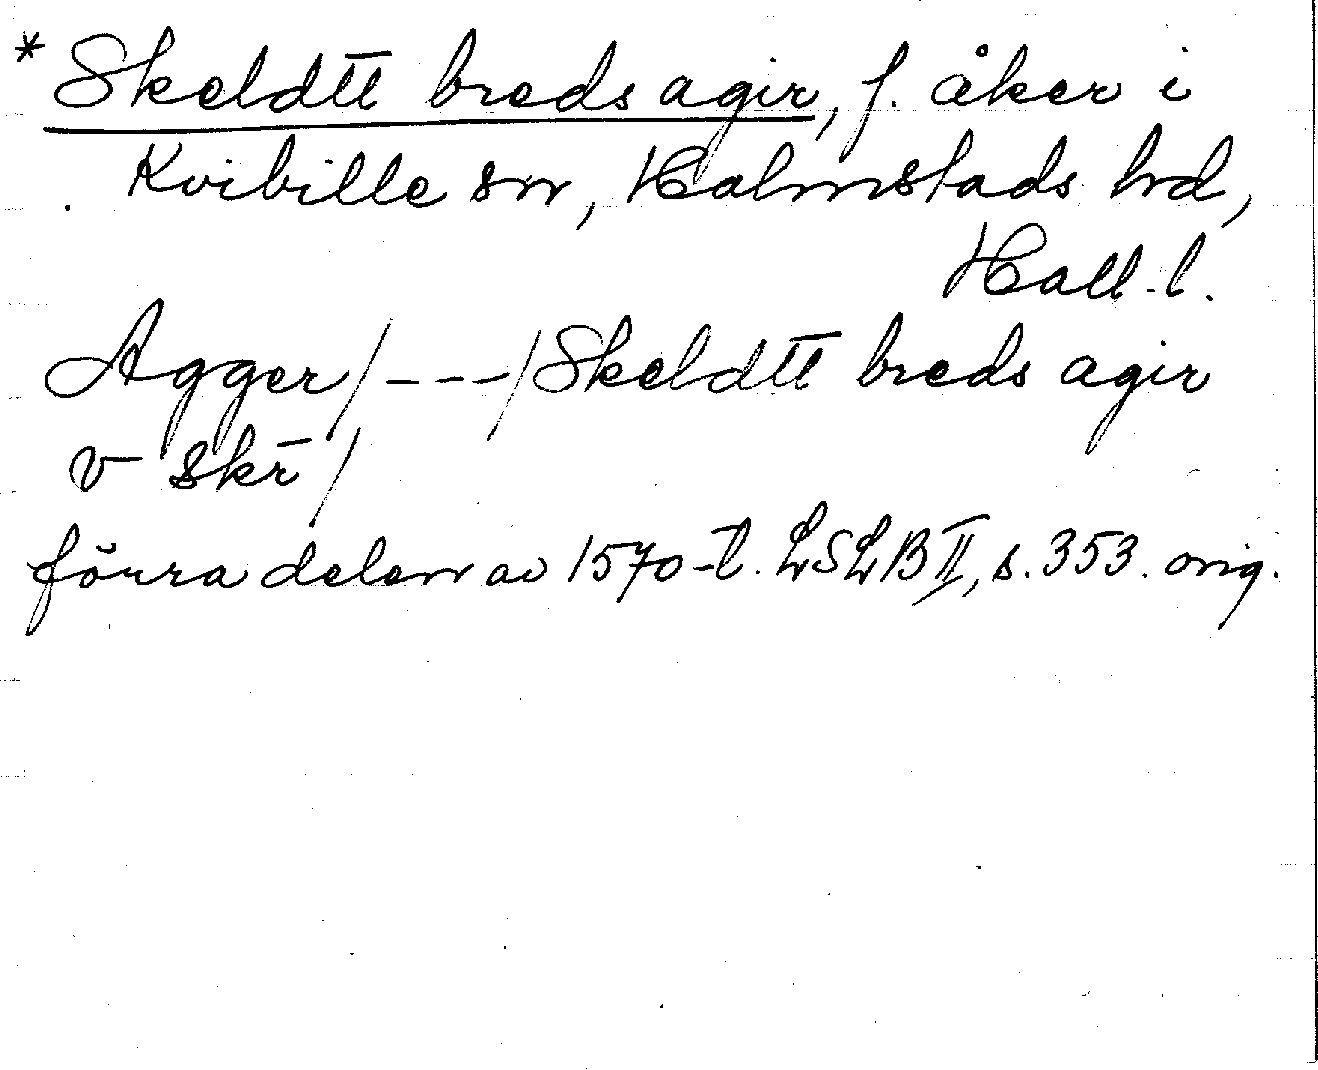 * Skeldtt breds agir, f. åker i
Kvibille sn, Halmstads hd,
Hall. l.
Agger/---/Skeldtt breds agir
v skr̄/
förra delen av 1570-t. LSLB II, s. 353. orig.